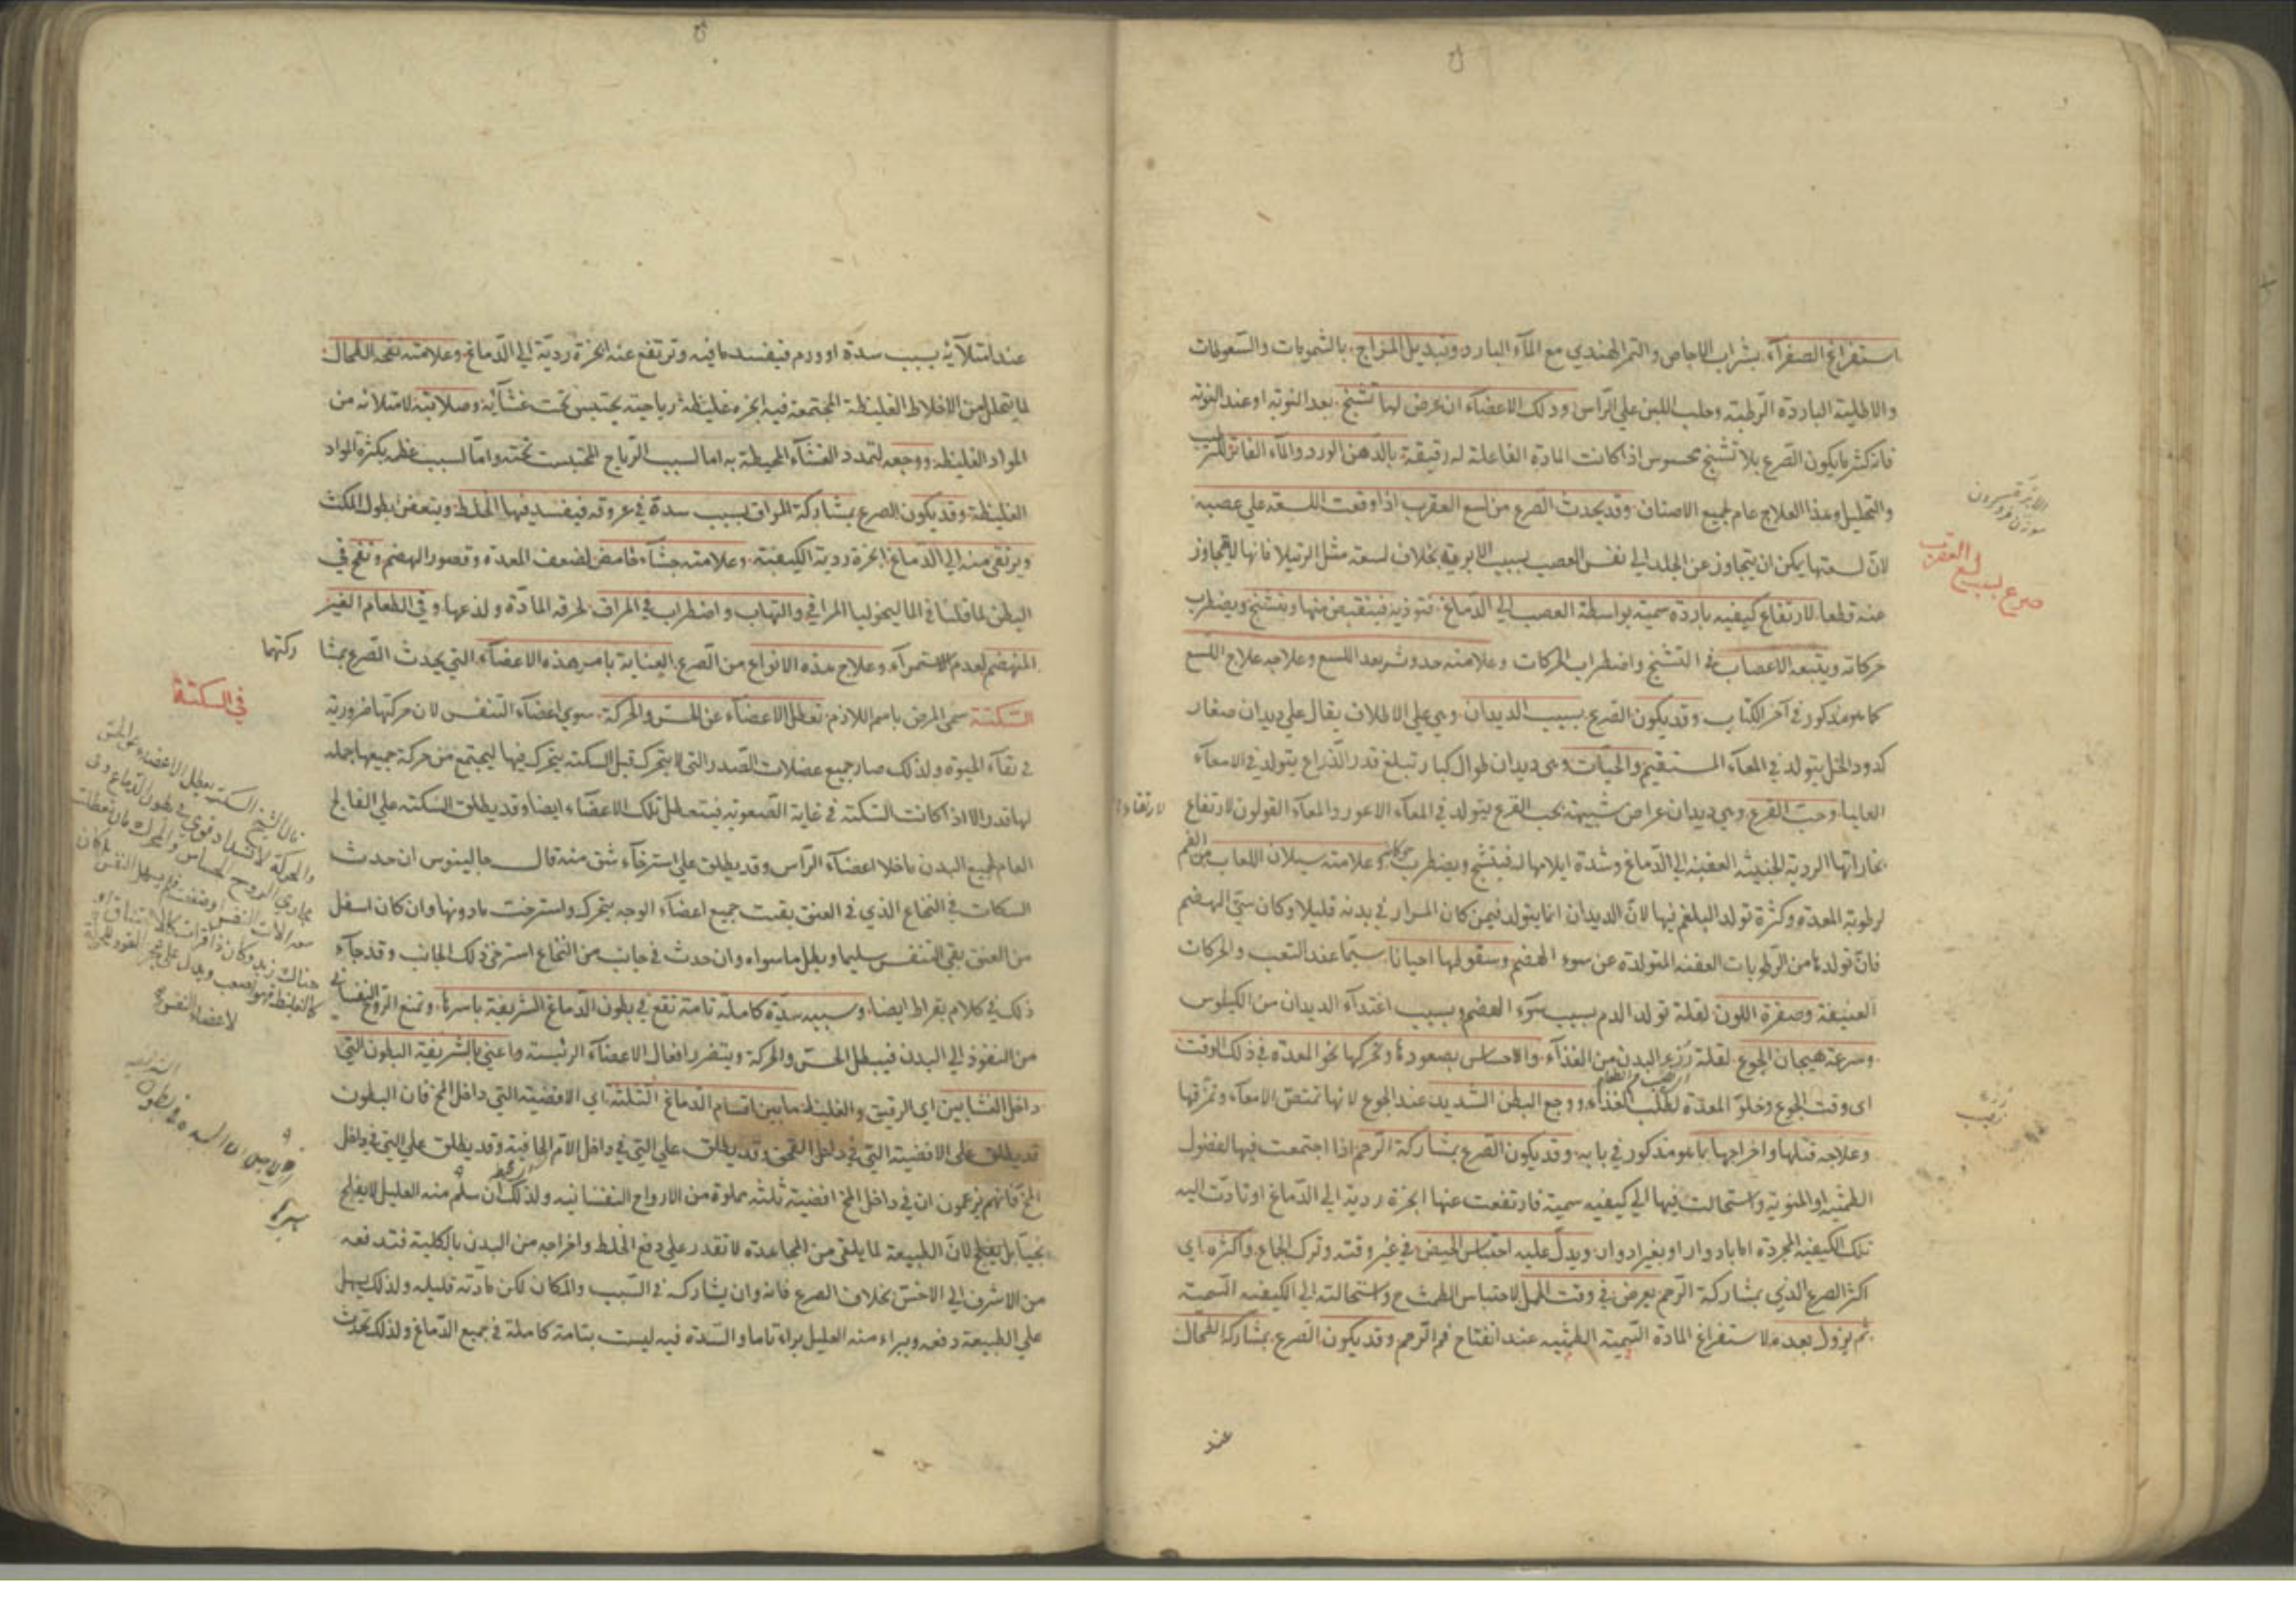 استفراغ الصفرآء بشراب الاجاص والتمر الهندي مع المآء البارد وتبديل المزاج بالشمومات والسعوطات
والاطلية الباردة الرطبة وحلب اللبن علي الرأس ودلك الاعضآء ان عرض لها تشنج بعد النوبة او عند النوبة
فانه كثيرا ما يكون الصرع بلا تشنج محسوس اذا كانت المادة الفاعلة له رقيقة بالدهن الورد والمآء الفاتر للترطيب
والتحليل وهذا العلاج عام لجميع الاصناف وقد يحدث الصرع من لسع العقرب اذا وقعت اللسعة علي عصبه
لان لسعتها يمكن ان يتجاوز عن الجلد الي نفس العصب بسبب الابرة بخلاف لسعة مثل الرتيلا فانها لا يتجاوز
عنه قطعا لارتفاع كيفيه باردة سمية بواسطة العصب الي الدماغ فتوذيه فينقبض منها ويتشنج ويضطرب
حركاته ويتبعه الاعصاب في التشنج واضطراب الحركات وعلامته حدوثه بعد اللسع وعلاجه علاج اللسع
كما هو مذكور في آخر الكتاب وقد يكون الصرع بسبب الديدان وهي علي الاطلاق يقال علي ديدان صغار
كدود الخل يتولد في المعآء المستقيم والحيات وهي ديدان طوال كبار تبلغ قدر الذراع يتولد في الامعآء
العليا وحب القرع وهي ديدان عراض شبيهة بحب القرع يتولد في المعآء الاعور والمعآء القولون لارتفاع
بخاراتها الردية الخبيثة العفنة الي الدماغ وشدة ايلامها له فيتشنج ويضطرب حركاته وعلامته سيلان اللعاب من الفم
لرطوبة المعدة وكثرة تولد البلغم فيها لان الديدان انما يتولد فيمن كان المرار في بدنه قليلا وكان سيئ الهضم
فان تولدها من الرطوبات العفنة المتولدة عن سوء الهضم وسقولها احيانا سيما عند التعب والحركات
العنيفة وصفرة اللون لقلة تولد الدم بسبب سوء الهضم وبسبب اغتذآء الديدان من الكيلوس
وسرعة هيجان الجوع لقلة رزء البدن من الغذآء والاحساس بصعودها وتحركها نحو المعدة في ذلك الوقت
اي وقت الجوع وخلو المعدة لطلب الغذآء ووجع البطن الشديد عند الجوع لانها تمتص الامعآء وتمزقها
وعلاجه قتلها واخراجها بما هو مذكور في بابه وقد يكون الصرع بمشاركة الرحم اذا اجتمعت فيها الفضول
الطمثية او المنوية واستحالت فيها الي كيفيه سمية فارتفعت عنها ابخرة ردية الي الدماغ او تادت اليه
تلك الكيفية المجردة اما بادوار او بغير ادوار ويدل عليه احتباس الحيض في غير وقته وترك الجماع واكثره اي
اكثر الصرع الذي بمشاركة الرحم يعرض في وقت الحمل لاحتباس الطمث ح واستحالته الي الكيفيه السمية
ثم يزول بعده لاستفراغ المادة السمية الطمثيه عند انفتاح فم الرحم وقد يكون الصرع بمشاركة الطحال
عند
صرع لسبب لسع العقرب
لارتقاء
عند امتلآئه بسبب سدة او ورم فيفسد ما فيه وترتفع عنه ابخرة ردية الي الدماغ وعلامته نفخة الطحال
لما يتحلل من الاخلاط الغليظة المجتمعة فيه ابخره غليظة رياحية يحتبس تحت غشآئه وصلابته لامتلائه من
المواد الغليظة ووجعه لتمدد الغشآء المحيطة به اما لسبب الرياح المحتبست تحته واما لسبب عظمه بكثرة المواد
الغليظة وقد يكون الصرع بمشاركة المراق بسبب سدة في عروقه فيفسد فيها الخلط ويتعفن بطول المكث
ويرتقي منه الي الدماغ ابخرة ردية الكيفية وعلامته جشآء حامض لضعف المعدة وقصور الهضم ونفخ في
البطن لما قلنا في الماليخوليا المراقي والتهاب واضطراب في المراق لحرقة المادة ولذعها وقي الطعام الغير
المنهضم لعدم الاستمرآء وعلاج هذه الانواع من الصرع العناية بامر هذه الاعضآء التي يحدث الصرع بمشا
ركتها
السكتة سمي المرض باسم اللازم تعطل الاعضآء عن الحس والحركة سوي اعضآء التنفس لان حركتها ضرورية
في بقآء الحيوة ولذلك صار جميع عضلات الصدر التي لا يتحرك قبل السكته يتحرك فيها ليجتمع من حركة جميعها جملة
لها قدر الا اذا كانت السكتة في غاية الصعوبة فيتعطل تلك الاعضآء ايضا وقد يطلق السكتة علي الفالج
العام لجميع البدن ما خلا اعضآء الرأس وقد يطلق علي استرخآء شق منه قال جالينوس ان حدث
السكات في النخاع الذي في العنق بقيت جميع اعضآء الوجه يتحرك واسترخت ما دونها وان كان اسفل
من العنق بقي التنفس سليما وبطل ما سواه وان حدث في جانب من النخاع استرخي ذلك الجانب وقد جآء
ذلك في كلام بقراط ايضا وسببه سدة كاملة تامة تقع في بطون الدماغ الشريفة باسرها وتمنع الروح النفساني
من النفوذ الي البدن فيبطل الحس والحركة ويتضرر افعال الاعضآء الرئيسة واعني بالشريفة البطون التي
داخل الغشابين اي الرقيق والغليظ ما بين اقسام الدماغ الثلثة اي الافضية التي داخل المخ فان البطون
قد يطلق علي الافضية التي في داخل القحف وقد يطلق علي التي في داخل الام الجافية وقد يطلق علي التي في داخل
المخ فانهم يزعمون ان في داخل المخ افضية ثلثه مملوة من الارواح النفسانيه ولذلك ان سلم منه العليل لا يفلج
بجنبا بل يفلج لان الطبيعة لما يلقي من المجاهدة لا تقدر علي دفع الخلط واخراجه من البدن بالكلية فتدفعه
من الاشرف الي الاخس بخلاف الصرع فانه وان يشاركه في السبب والمكان لكن مادته قليله ولذلك يسهل
علي الطبيعة دفعه ويبراء منه العليل براء تاما والسدة فيه ليست بتامة كاملة في جميع الدماغ ولذلك تحدث
في السكتة
قال الشيخ السكتة تعطل الاعضاء عن الحس
والحركة لانسداد قوي في بطون الدماغ وفي
مجاري الروح الحساس والمحرك فان تعطلت